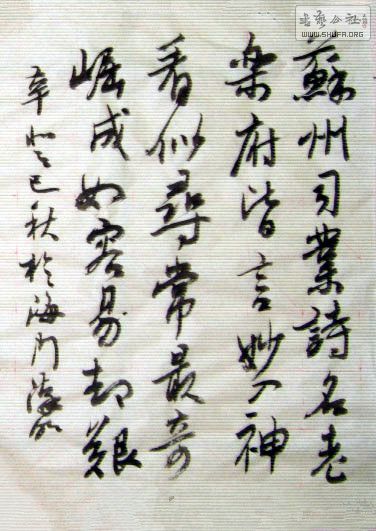 蘇州司業詩名老
楽府皆言妙入神
看似尋常最奇
崛成如容易却艱
辛 癸巳秋於海門
書藝公社
WWW.SHUFA.ORG